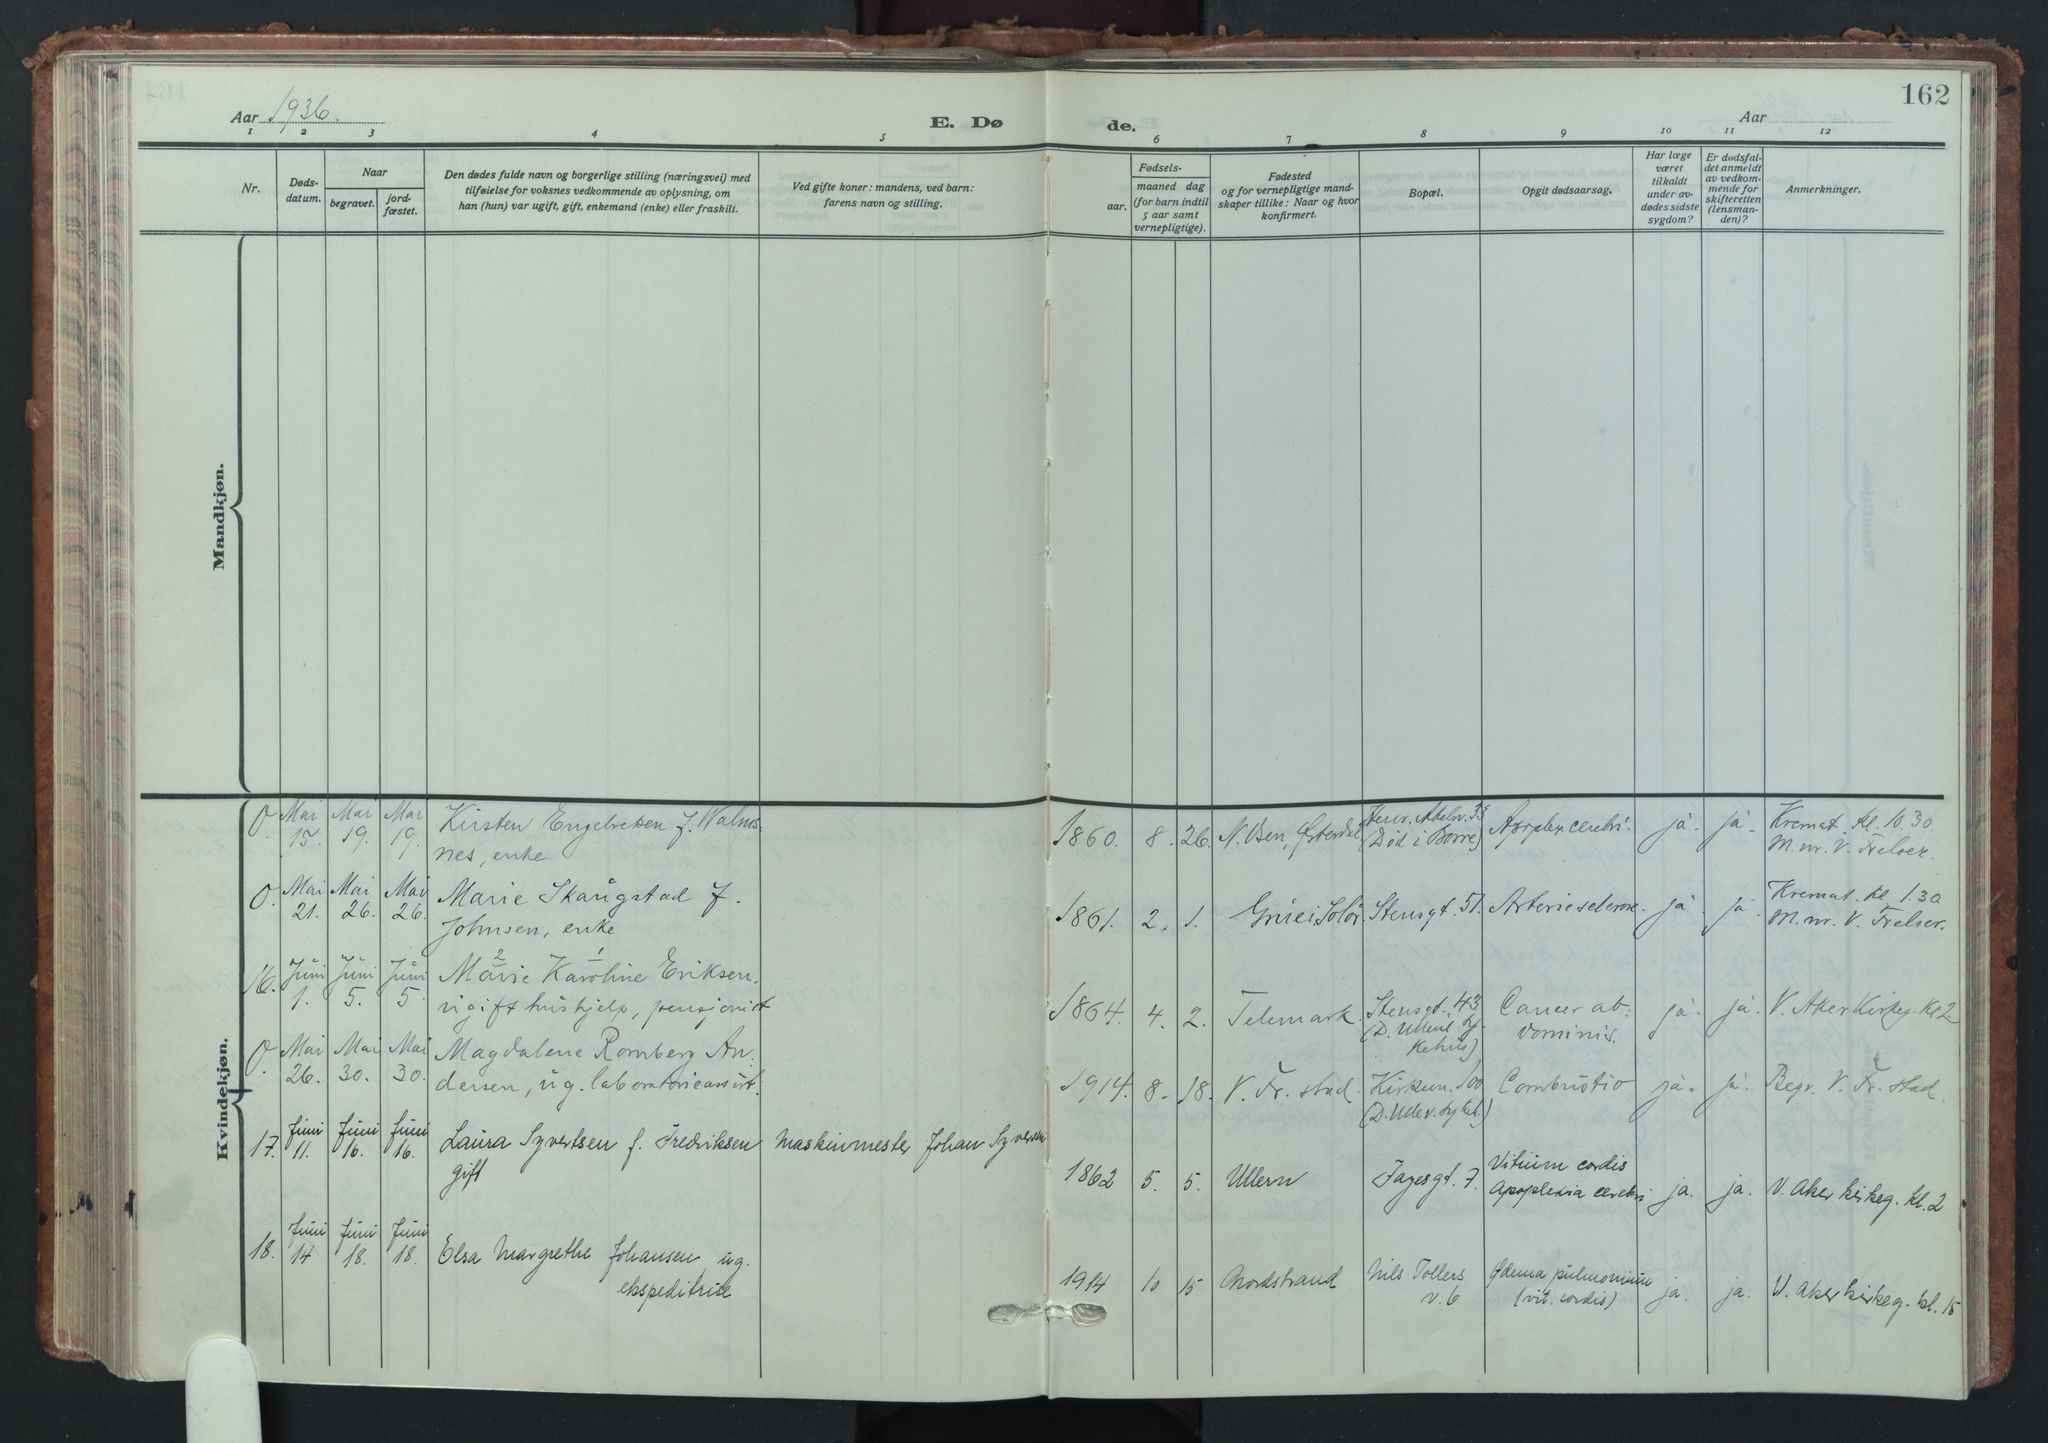 162
Aar 1936.
E. Døde.
Aar
1 2 3 4 5 6 7 8 9 10 11 12
Nr.
Døds-
datum.
Naar
begravet.
jord-
fæstet.
Den dødes fulde navn og borgerlige stilling (næringsvei) med
tilføielse for voksnes vedkommende av oplysning, om
han (hun) var ugift, gift, enkemand (enke) eller fraskilt.
Ved gifte koner: mandens, ved barn:
farens navn og stilling.
Fødsels-
aar.
maaned dag
(for barn indtil
5 aar samt
vernepligtige).
Fødested
og for vernepligtige mand-
skaper tillike: Naar og hvor
konfirmert.
Bopæl.
Opgit dødsaarsag.
Har læge
været
tilkaldt
under av-
dødes sidste
sygdom?
Er dødsfal-
det anmeldt
av vedkom-
mende for
skifteretten
(lensman-
den)?
Anmerkninger.
Mandkjøn.
Kvindekjøn.
0. Mai 15. Mai 19. Mai 19. Kirsten Engebretsen f. Walms-
nes, enke
1860. 8. 26. N. Osen, Østerdal (Død i Borre) Apoplex cerebri. ja. ja. Kremat. kl. 10.30
M. nr. V. Frelser.
0. Mai 21. Mai 26. Mai 26. Marie Skaugstad f.
Johnsen, enke
1861. 2. 1. Grue i Solør Stensgt. 51. Arteriesclerose. ja. ja. Kremat. kl 1.30
M. nr. V. Frelser.
16. Juni 1. Juni 5. Juni 5. 2 Marie 1 Karoline Eriksen,
ugift hushjelp, pensjonist
1864. 4. 2. Telemark. Stensgt. 43 Cancer ab- ja. ja. V. Aker Kirkeg. kl 2
(D. Ullevål sy- dominis.
kehus)
0. Mai 26. Mai 30. Mai 30. Magdalene Romberg An-
dersen, ug. laboratorieassist.
1914. 8. 18. V. Fr. stad. Kirkevn. 100 Combustio ja. ja. Begr. V. Fr. stad.
(D. Ullev. sykeh.)
17. Juni 11. Juni 16. Juni 16. Laura Syvertsen f. Fredriksen Maskinmester Johan Syversen
gift
1862 5. 5. Ullern Fayesgt. 7. Vitium cordis
apoplexia cerebri ja. ja. V. Aker kirkeg. kl. 2
18. Juni 14 Juni 18. Juni 18. Elsa Margrethe Johansen, ug.
ekspeditrise
1914 10 15 Nordstrand Nils Tollers Ødema pulmonium ja. ja. V. Aker kirkeg. kl. 15
v. 6 (vit. cordis)